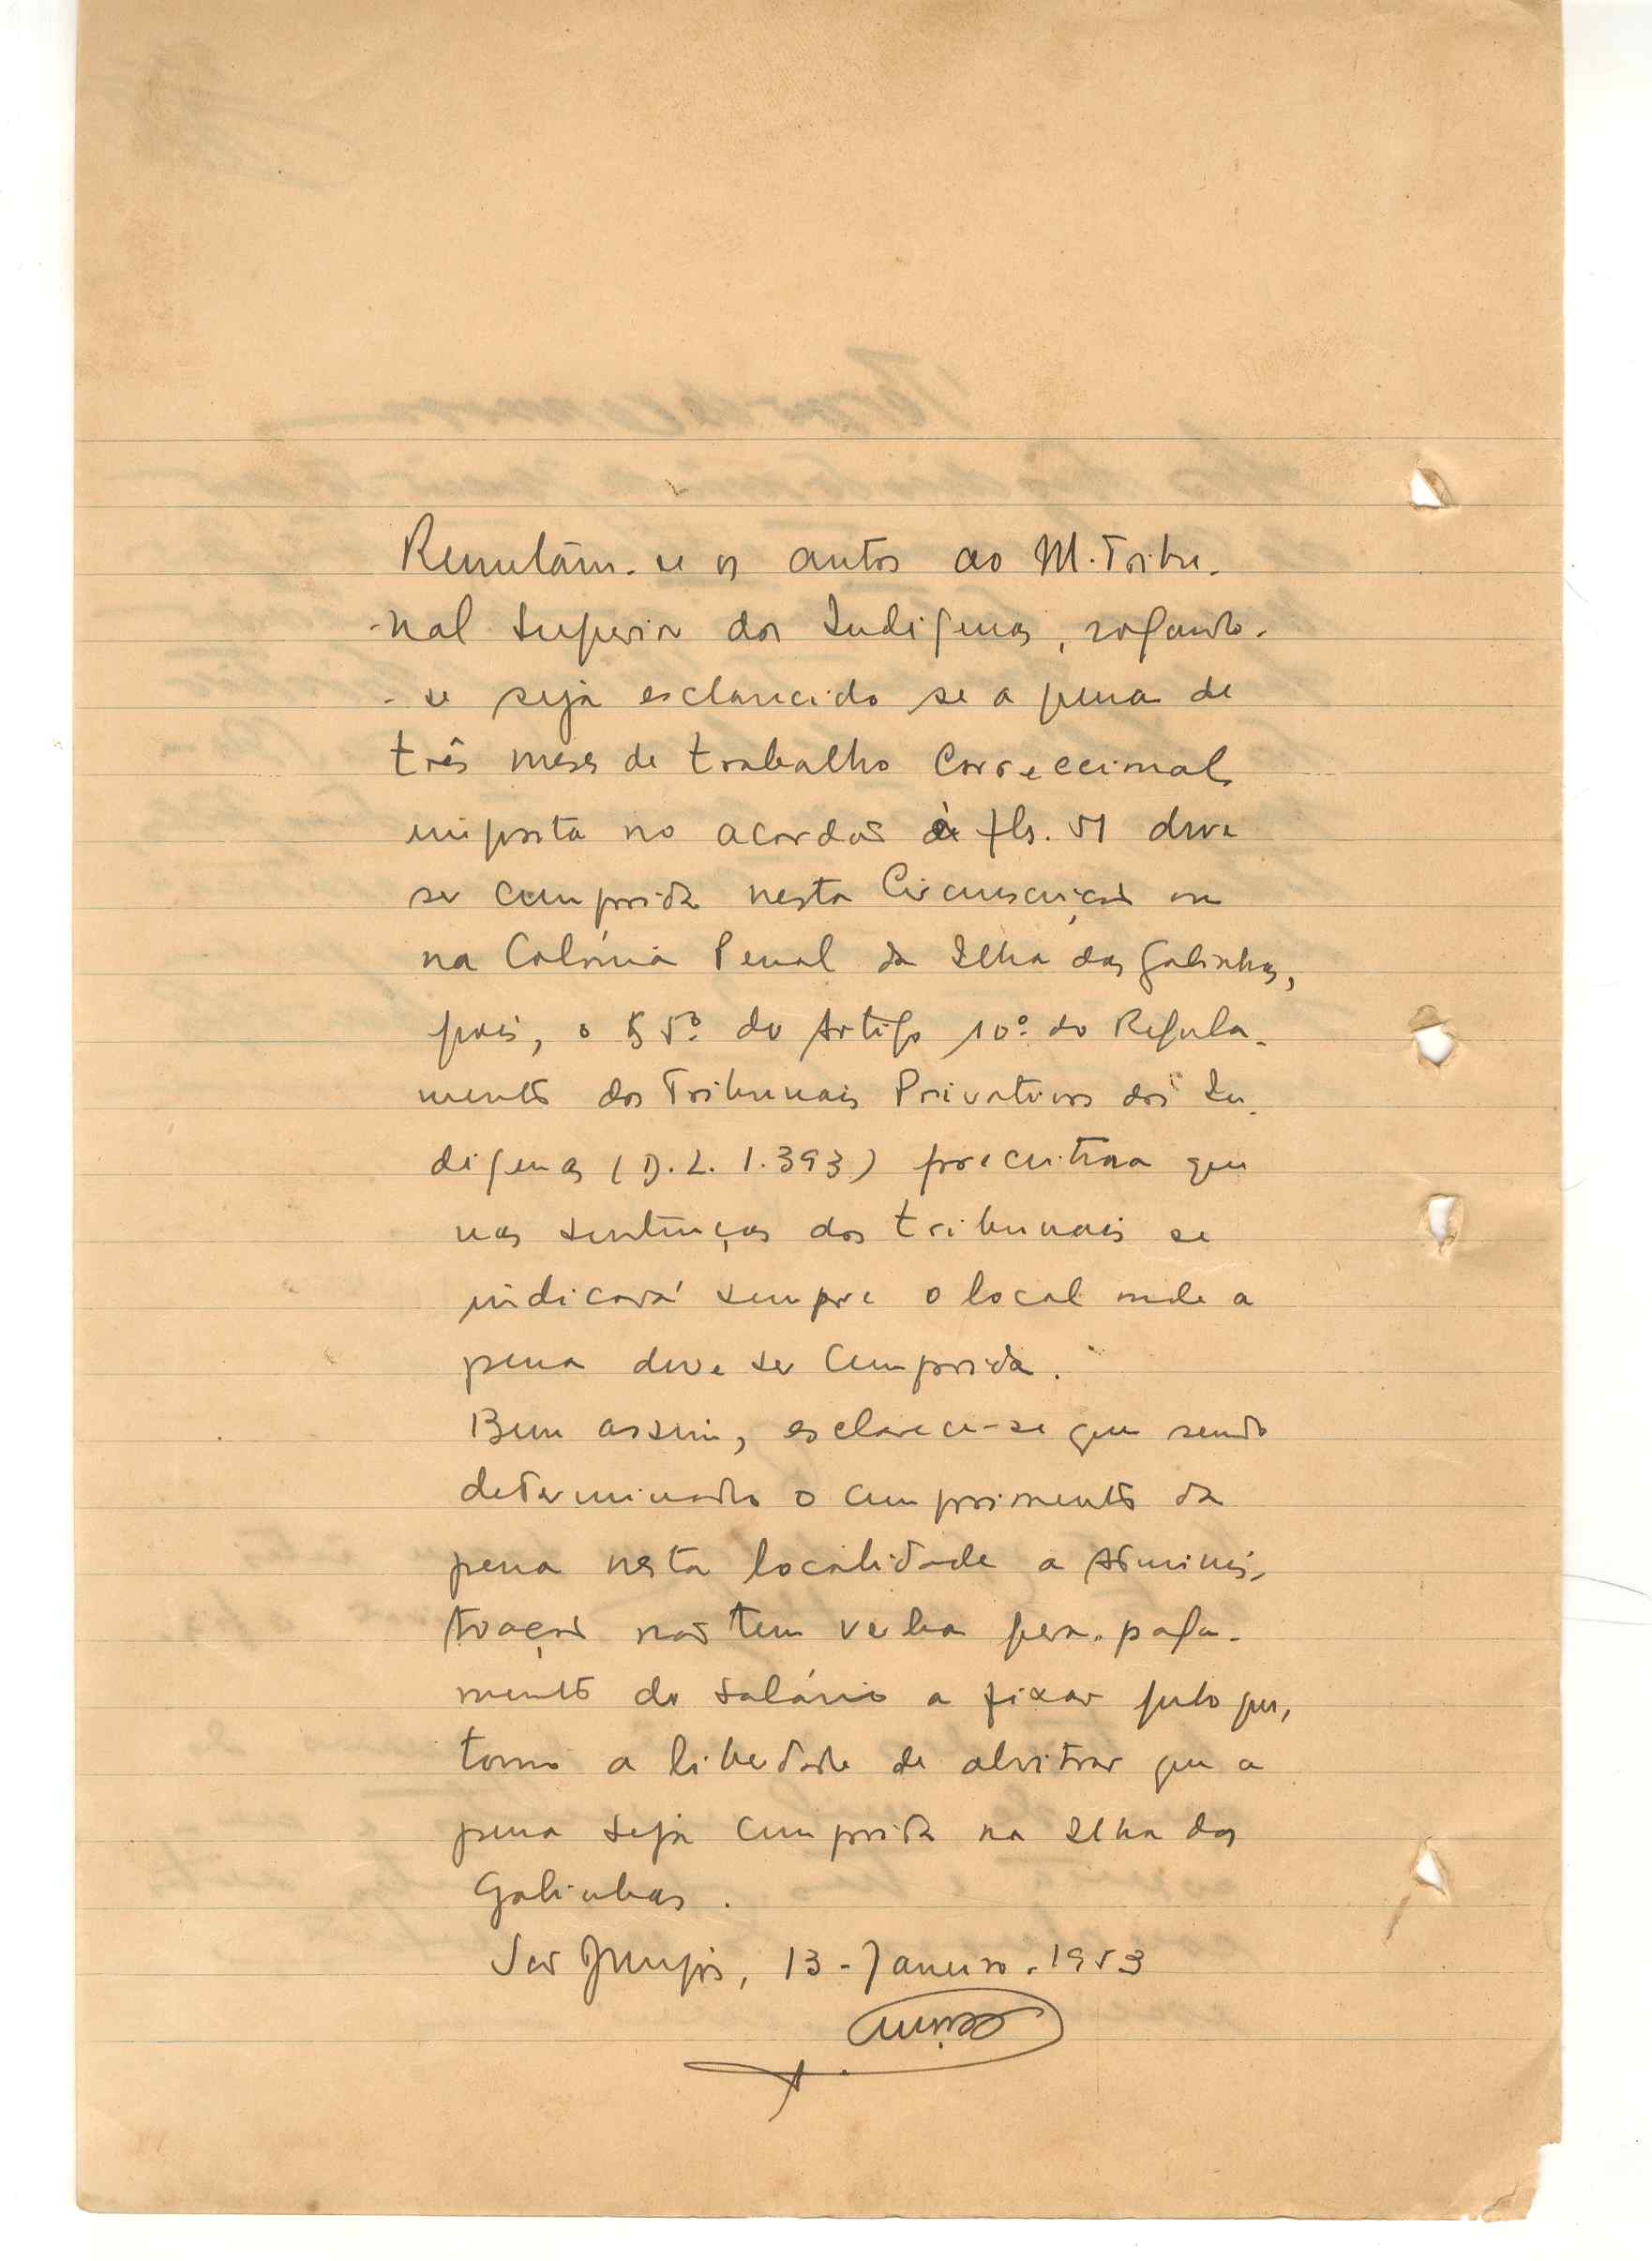 Remetam-se os autos ao M. Tribu-
-nal Superior dos Indígenas, rogando-
-se seja esclarecido se a pena de
três meses de trabalho correccional
imposta no acordão à fls. 51 deve
ser cumprida nesta Circunscrição ou
na Colónia Penal da Ilha das Galinhas,
pois, o § 5º. do Artigo 10º. do Regula-
mento dos Tribunais Privativos dos In-
digenas (D.L. 1.393) preceitua que
nas sentenças dos tribunais se
indicará sempre o local onde a
pena deve ser cumprida.
Bem assim, esclarece-se que sendo
determinado o cumprimento da
pena nesta localidade a Adminis-
tração não tem verba para paga-
mento do salário a fixar pelo que,
tomo a liberdade de alvitrar que a
pena seja cumprida na Ilha das
Galinhas.
13-Janeiro-1953